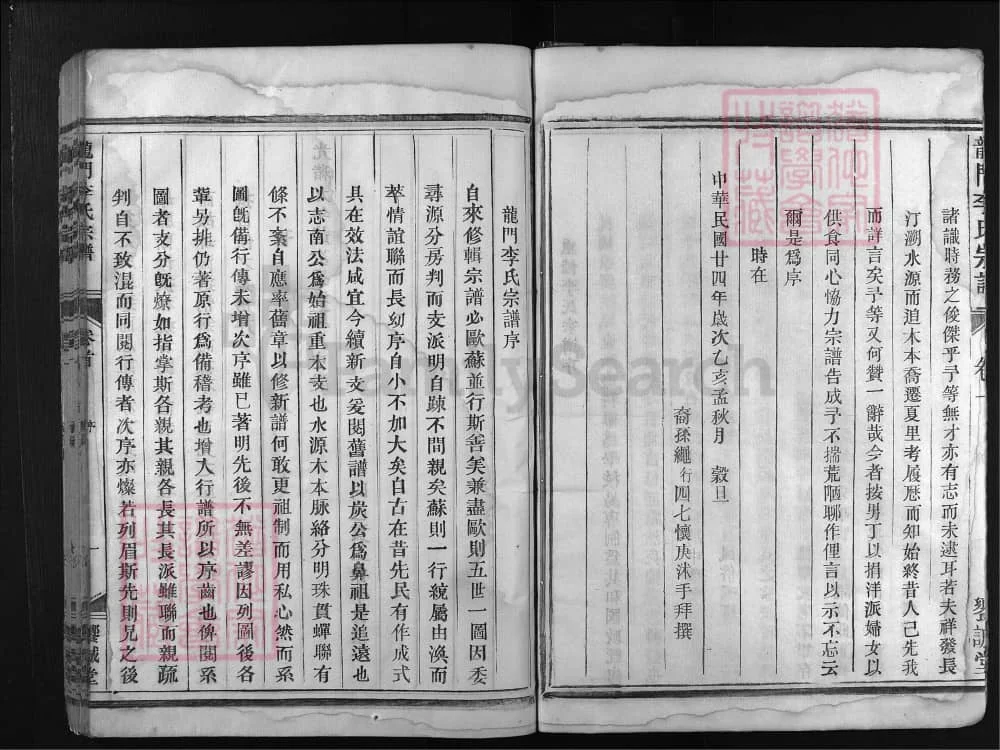 諸識時務之俊傑乎予等無才亦有志而未逮耳若夫祥發長
汀溯水源而追木本喬遷夏里考履歷而知始終昔人已先我
而詳言矣予等又何贊一辭哉今者按男丁以捐洋派婦女以
供食同心恊力宗譜告成予不揣荒陋聊作俚言以示不忘云
爾是爲序
時在
中華民國廿四年歲次乙亥孟秋月 穀旦
裔孫繩行四七懷庚沐手拜撰
龍門李氏宗譜序
自來修輯宗譜必歐蘇並行斯善矣兼盡歐則五世一圖因委
尋源分房判而支派明自踈不間親矣蘇則一行統屬由渙而
萃情誼聯而長幼序自小不加大矣自古在昔先民有作成式
具在效法咸宜今續新支爰閱舊譜以炭公爲鼻祖是追遠也
以志南公爲始祖重本支也水源木本脉絡分明珠貫蟬聯有
條不紊自應率舊章以修新譜何敢更祖制而用私心然而系
圖旣備行傳未增次序雖已著明先後不無差謬因列圖後各
輩另排仍著原行爲備稽考也增人行譜所以序齒也俾閱系
圖者支分旣燎如指掌斯各親其親各長其長派雖聯而親疏
判自不致混而同閱行傳者次序亦燦若列眉斯先則兄之後
龍門李氏宗譜
卷首
序
一
龍門李氏宗譜